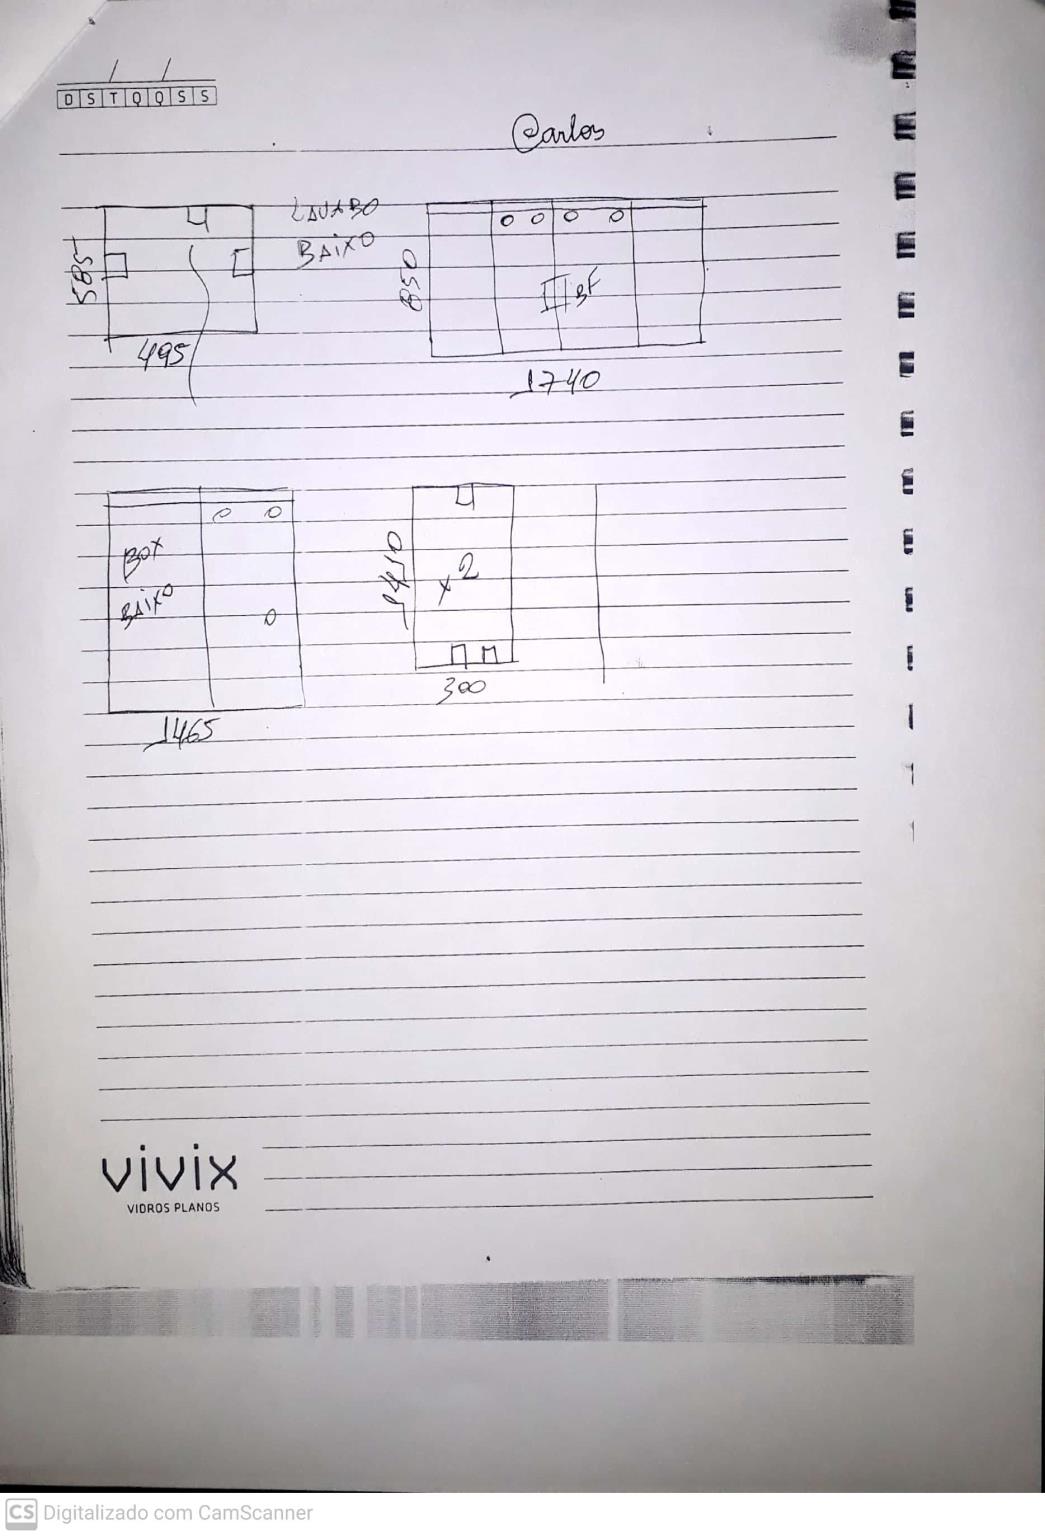 D S T Q Q S S
Carlos
LAVABO
BAIXO
585
495
850
BF
1740
BOX
BAIXO
1465
x2
300
vivix
VIDROS PLANOS
CS Digitalizado com CamScanner